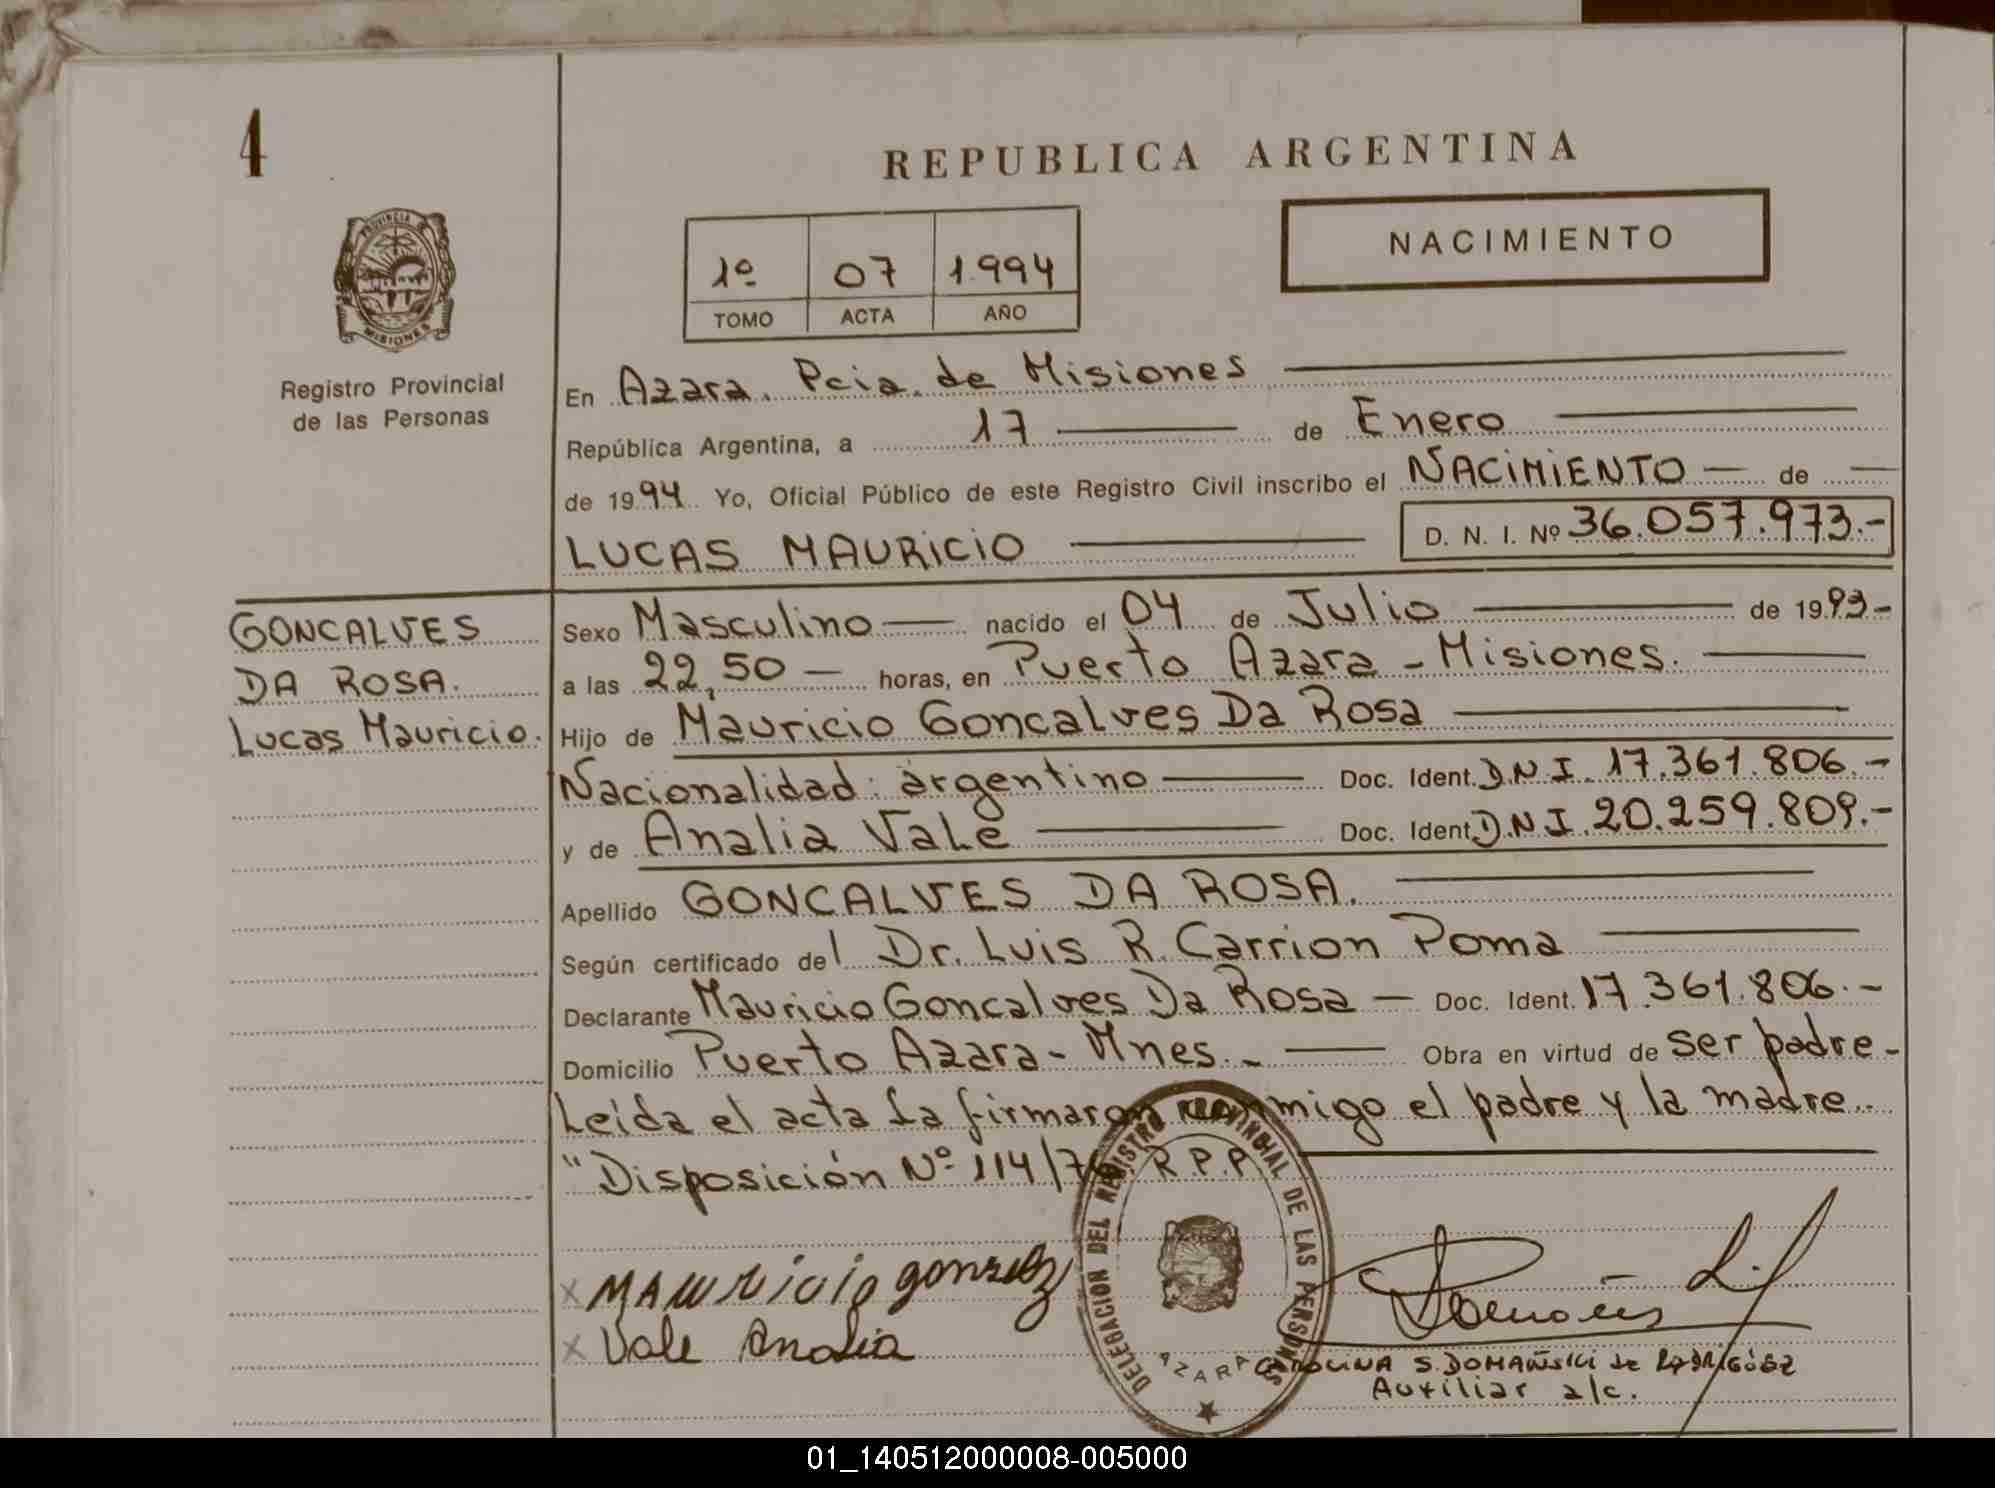 4
REPUBLICA ARGENTINA
NACIMIENTO
1º 07 1994
TOMO ACTA AÑO
PROVINCIA
MISIONES
Registro Provincial
de las Personas
En Azara. Pcia. de Misiones
República Argentina, a 17 de Enero
de 1994 Yo, Oficial Público de este Registro Civil inscribo el NACIMIENTO de
LUCAS MAURICIO D. N. I. Nº 36.057.973.-
GONCALVES
DA ROSA.
Lucas Mauricio.
Sexo Masculino nacido el 04 de Julio de 1993-
a las 22,50 horas, en Puerto Azara - Misiones.
Hijo de Mauricio Goncalves Da Rosa
Nacionalidad: argentino Doc. Ident. D.N.I. 17.361.806.-
y de Analia Vale Doc. Ident. D.N.I. 20.259.809.-
Apellido GONCALVES DA ROSA.
Según certificado del Dr. Luis R. Carrion Poma
Declarante Mauricio Goncalves Da Rosa - Doc. Ident. 17.361.806.-
Domicilio Puerto Azara - Mnes.- Obra en virtud de ser padre-
Leída el acta la firmaron conmigo el padre y la madre..
"Disposición Nº 114/ R.P.P
DELEGACION DEL REGISTRO PROVINCIAL DE LAS PERSONAS
AZARA
x MAuricio gonzalez
x Vale Analia
CAROLINA S. DOMAÑSKI de RODRIGUEZ
Auxiliar a/c.
01_140512000008-005000